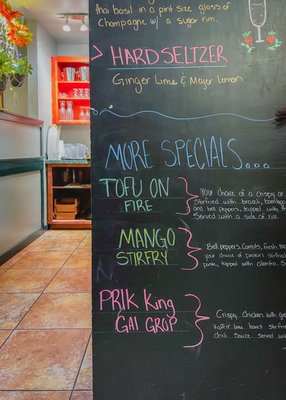 thai basil in a pint size glass of
Champagne w/ a sugar rim.
HARD SELTZER
Ginger Lime & Meyer Lemon
MORE SPECIALS...
TOFU ON
FIRE
Your choice of a crispy or
Stirfried with broccoli, bamboo
and bell peppers, topped with
Served with a side of rice.
MANGO
STIRFRY
Bell peppers, Carrots, fresh
your choice of protein stirfried
topped with cilantro.
PRIK King
GAI GROP
Crispy chicken with
Kaffir lime leaves stirfried
chili sauce. Served